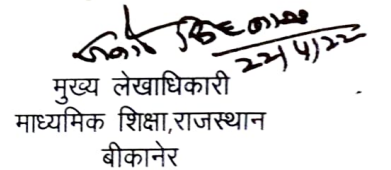 22/4/22
मुख्य लेखाधिकारी
माध्यमिक शिक्षा,राजस्थान
बीकानेर